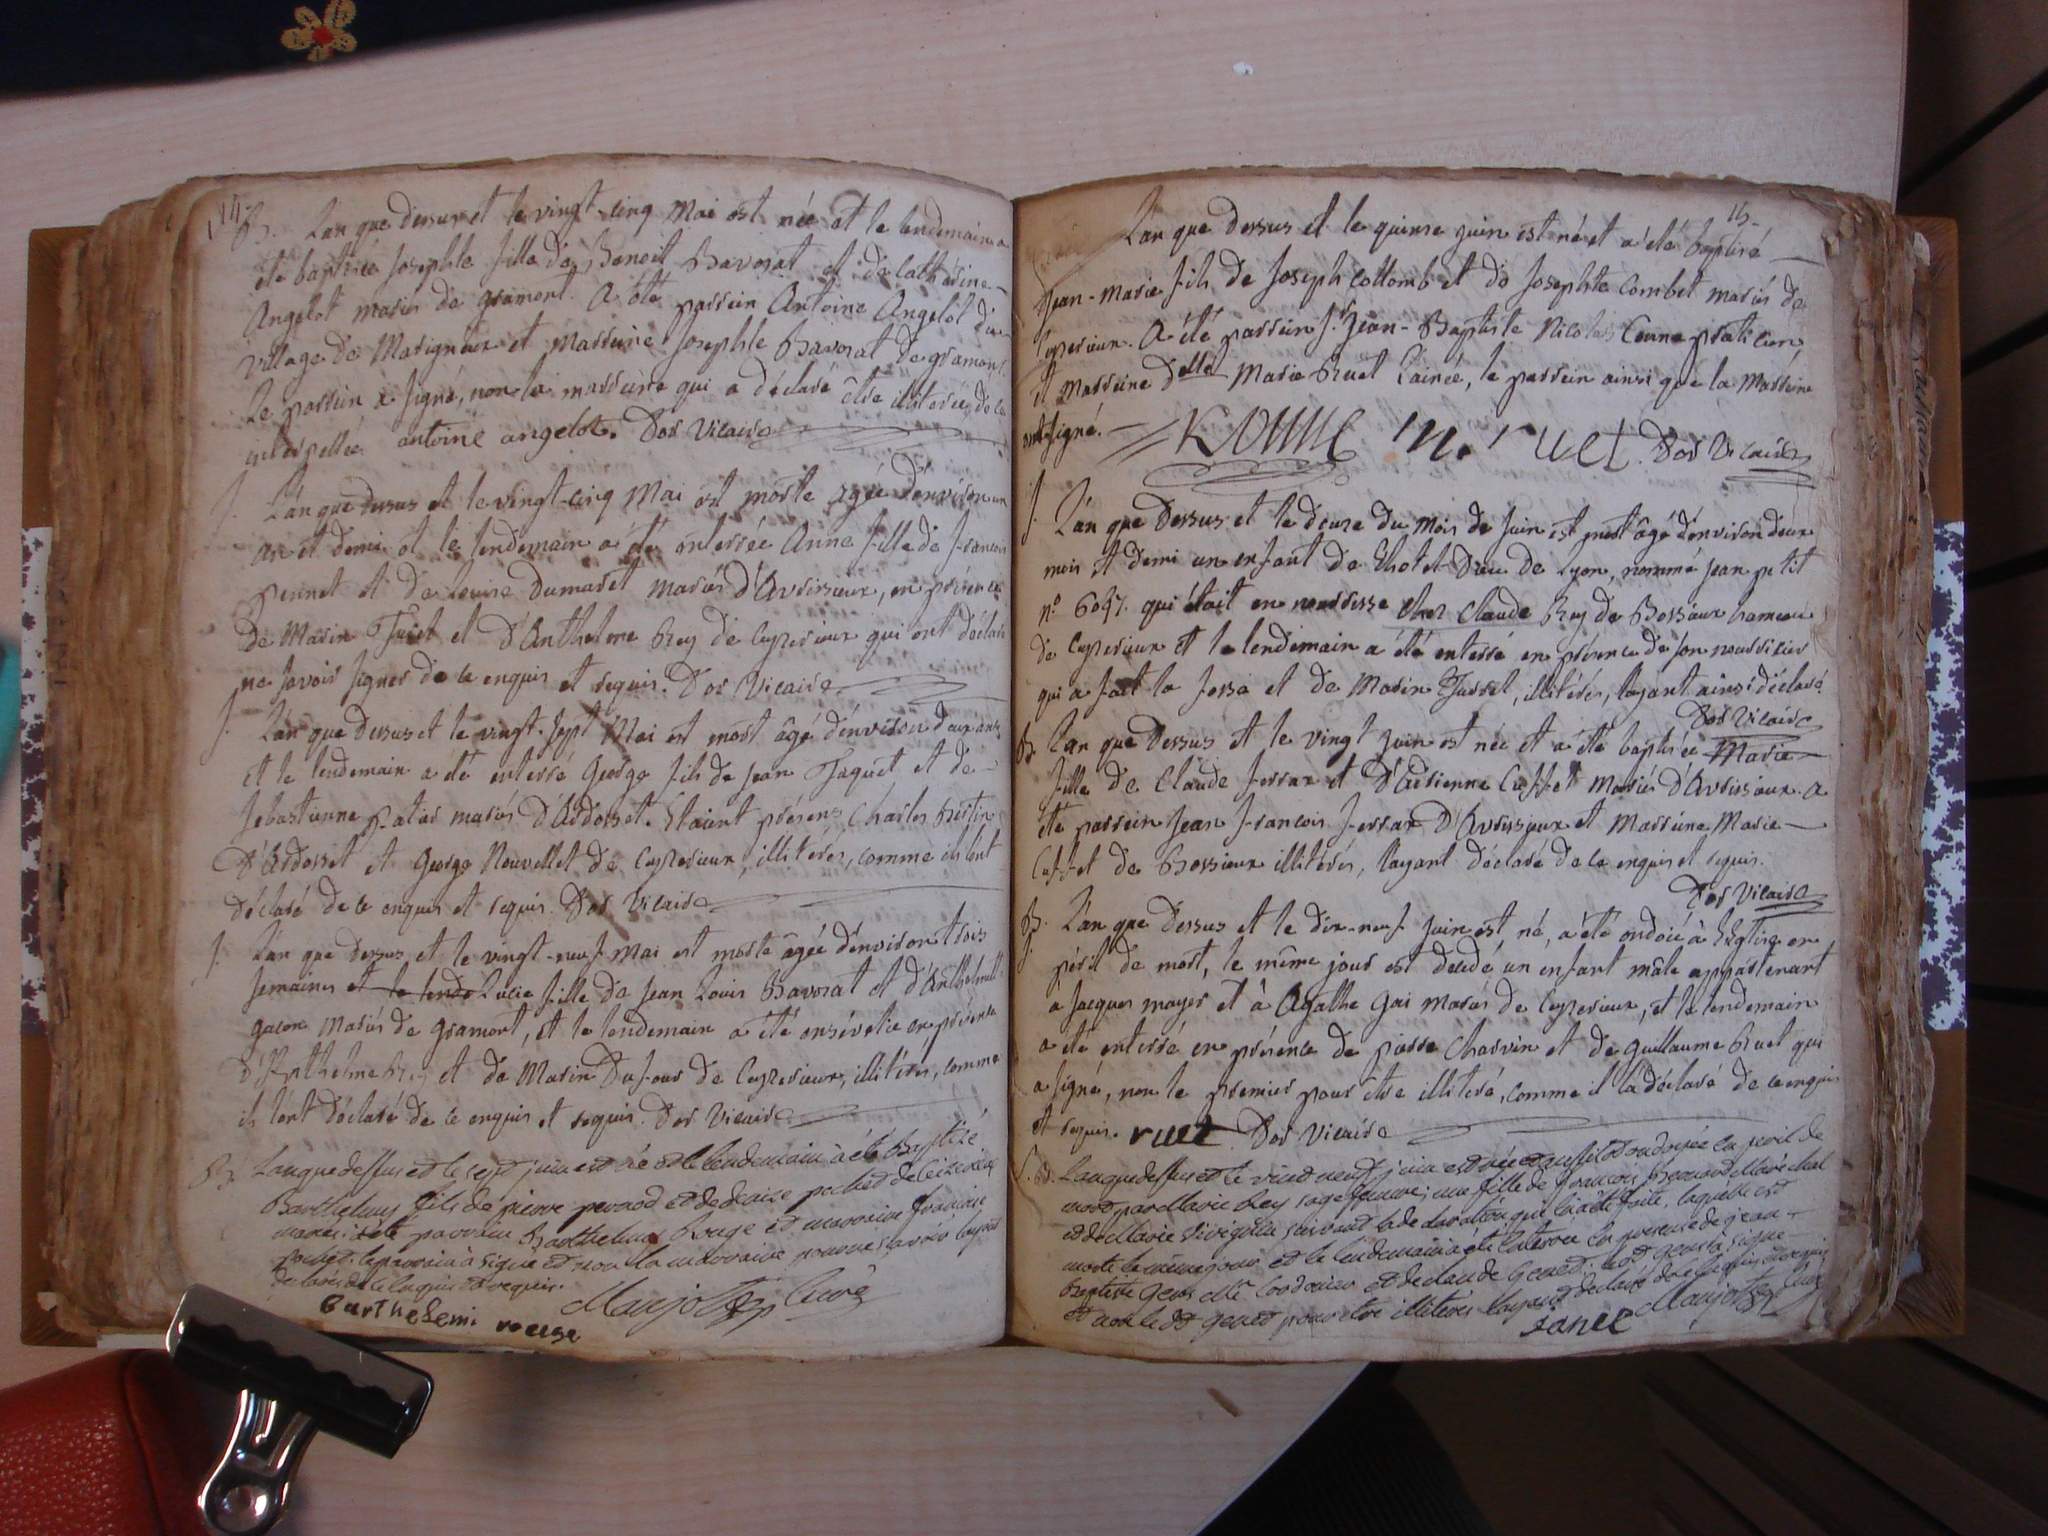 14.
B. L'an que dessus et le vingt-cinq Mai est née et le lendemain a
été baptisée Josephte fille de Benoit Bavosat et de Catherine
Angelot mariés de gramont. A été parrein Antoine Angelot du
village de Marignieux et marreine Josephte Bavosat de gramont.
Le parrein a signé, non la marreine qui a déclaré être illiterée de ce
interpellée. antoine angelot. Dor Vicaire
S. L'an que dessus et le vingt-cinq Mai est morte agée d'environ un
an et demi et le lendemain a été enterrée Anne fille de francois
pennet et de Louise Dumaret mariés d'Avrissieux, en présence
de Marin Turrel et d'Anthelme Rey de Ceyzerieux qui ont déclaré
ne savoir signer de ce enquis et requis. Dor Vicaire
S. L'an que dessus et le vingt-sept Mai est mort âgé d'environ deux ans
et le lendemain a été enterré George fils de Jean Taquet et de
Sebastienne patis mariés d'Ardosset. Etaient présens Charles Bertin
d'Ardosset et George Nouvellet de Ceyzerieux, illiterés, comme ils l'ont
déclaré de ce enquis et requis. Dor Vicaire
S. L'an que dessus et le vingt-neuf Mai est morte âgée d'environ trois
semaines et le lende Lucie fille de Jean Louis Bavosat et d'Anthelmette
gacon Mariés de gramont, et le lendemain a été ensévelie en présence
d'Anthelme Rey et de Marin Dufour de Ceyzerieux, illiterés, comme
ils l'ont déclaré de ce enquis et requis. Dor Vicaire
B. L'an que dessus et le sept juin est né et le lendemain à été Baptisé
Barthelemy fils de pierre peraod et de denise pochet de Ceizerieux
mariés: a été parrain Barthelemy Rouge et marraine francoise
pochet. le parrain à signé et non la marraine pour ne scavoir layant
declaré de ce enquis et requis.
barthelemi rouge Marjollet Curé
15.
L'an que dessus et le quinze juin est né et a été baptisé
Jean-Marie fils de Joseph Collomb et de Josephte Combet mariés de
Ceyzerieux. A été parrein S. Jean-Baptiste Nicolas Conne praticien
et Marreine Delle Marie Ruet l'ainée, le parrein ainsi que la Marreine
ont signé. Konne m. ruet. Dor Vicaire
S. L'an que dessus et le douze du Mois de Juin est mort âgé d'environ deux
mois et demi un enfant de l'hotel Dieu de Lyon, nommé Jean petit
n.o 6047. qui était en nourrisse chez Claude Rey de Bossieux hameau
de Ceyzerieux et le lendemain a été enterré en présence de son nourricier
qui a fait la fosse et de Marin Turrel, illiterés, l'ayant ainsi déclaré.
Dor Vicaire
B. L'an que dessus et le vingt juin est née et a été baptisée Marie
fille de Claude ferrar et d'Adrienne Cuffet Mariés d'Avrissieux. a
été parrein Jean francois ferrar d'Avrissieux et Marreine Marie
Cuffet de Bossieux illiterés, l'ayant déclaré de ce enquis et requis.
Dor Vicaire
B. S. L'an que dessus et le dix-neuf juin est né, a été ondoié à l'Eglise en
péril de mort, le même jour est décédé, un enfant mâle appartenant
a Jacques mayer et à Agathe Gai Mariés de Ceyzerieux, et le lendemain
a été enterré en présence de pierre Charvin et de Guillaume Ruet qui
a signé, non le premier pour être illiteré, comme il l'a déclaré de ce enquis
et requis. ruet Dor Vicaire
S. B. L'an que dessus et le vint neuf juin est née et aussitot ondoyée en peril de
mort par Marie Rey sage femme; une fille de francois Bernard Maréchal
et de Marie suivant la declaration que lui a été faite, laquelle est
morte le même jour et le lendemain a été enterrée en presence de jean
Baptiste Gens Me Cordonier et de Claude Genet. le dt gens a signé
et non le dt genet pour etre illiteré layant declaré de ce enquis et requis
Marjollet Curé